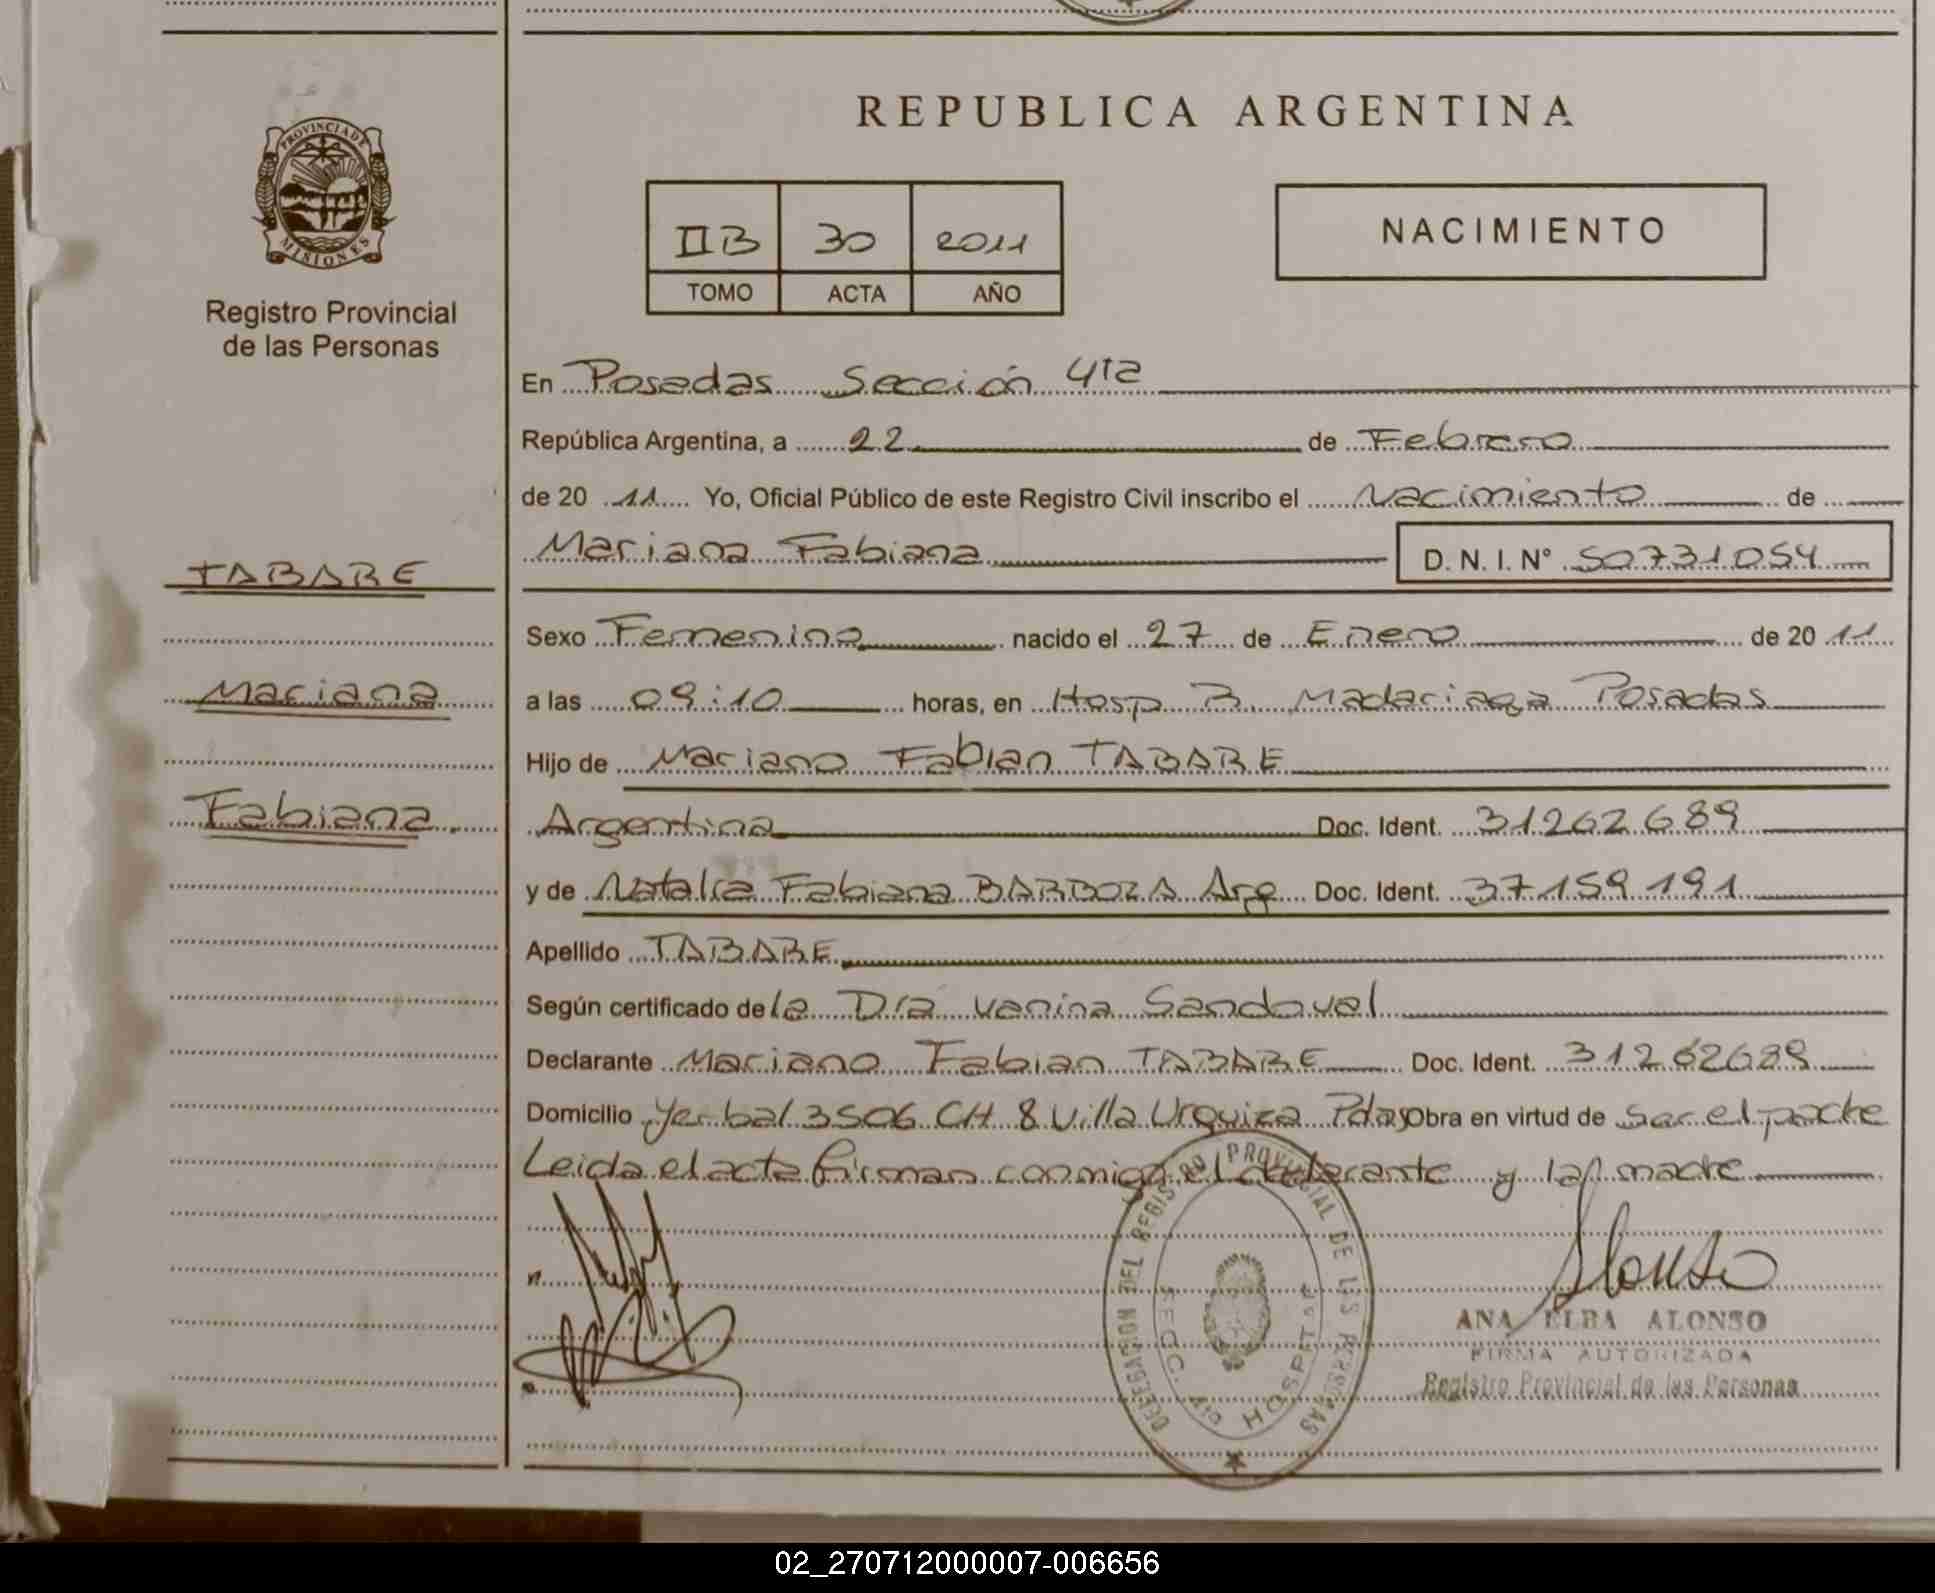 REPUBLICA ARGENTINA
PROVINCIA DE
MISIONES
Registro Provincial
de las Personas
IIB 30 2011
TOMO ACTA AÑO
NACIMIENTO
En Posadas Sección 4ta
República Argentina, a 22 de Febrero
de 20 11 Yo, Oficial Público de este Registro Civil inscribo el Nacimiento de
Mariana Fabiana D. N. I. N° 50731054
TABARE
Sexo Femenina nacido el 27 de Enero de 20 11
Mariana
a las 09:10 horas, en Hosp R. Madariaga Posadas
Hijo de Mariano Fabian TABARE
Fabiana
Argentina Doc. Ident. 31262689
y de Natalia Fabiana BARBOZA Arg Doc. Ident. 37159191
Apellido TABARE
Según certificado de la Dra Vanina Sandoval
Declarante Mariano Fabian TABARE Doc. Ident. 31262689
Domicilio Yerbal 3506 CH 8 Villa Urquiza Pdas Obra en virtud de ser el padre
Leida el acta firman conmigo el declarante y la madre
DELEGACION DEL REGISTRO PROVINCIAL DE LAS PERSONAS
SECC. 4ta HOSPITAL
Alonso
ANA ELBA ALONSO
FIRMA AUTORIZADA
Registro Provincial de las Personas
02_270712000007-006656